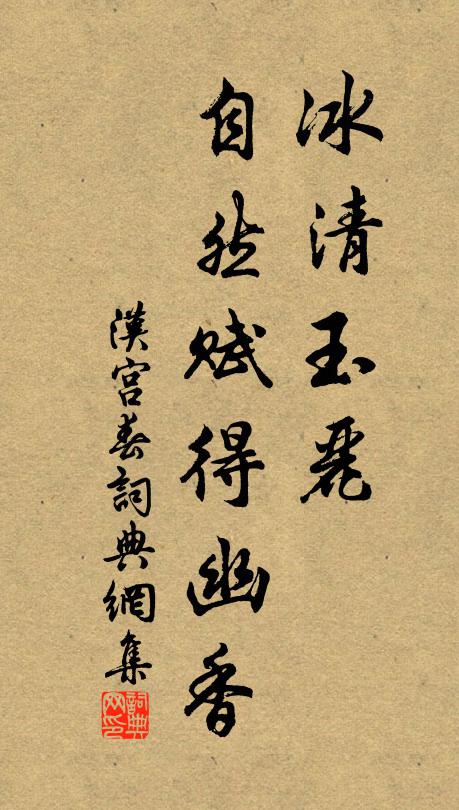 冰清玉麗
自然賦得幽香
漢宮春詞典網集
詞典
网印